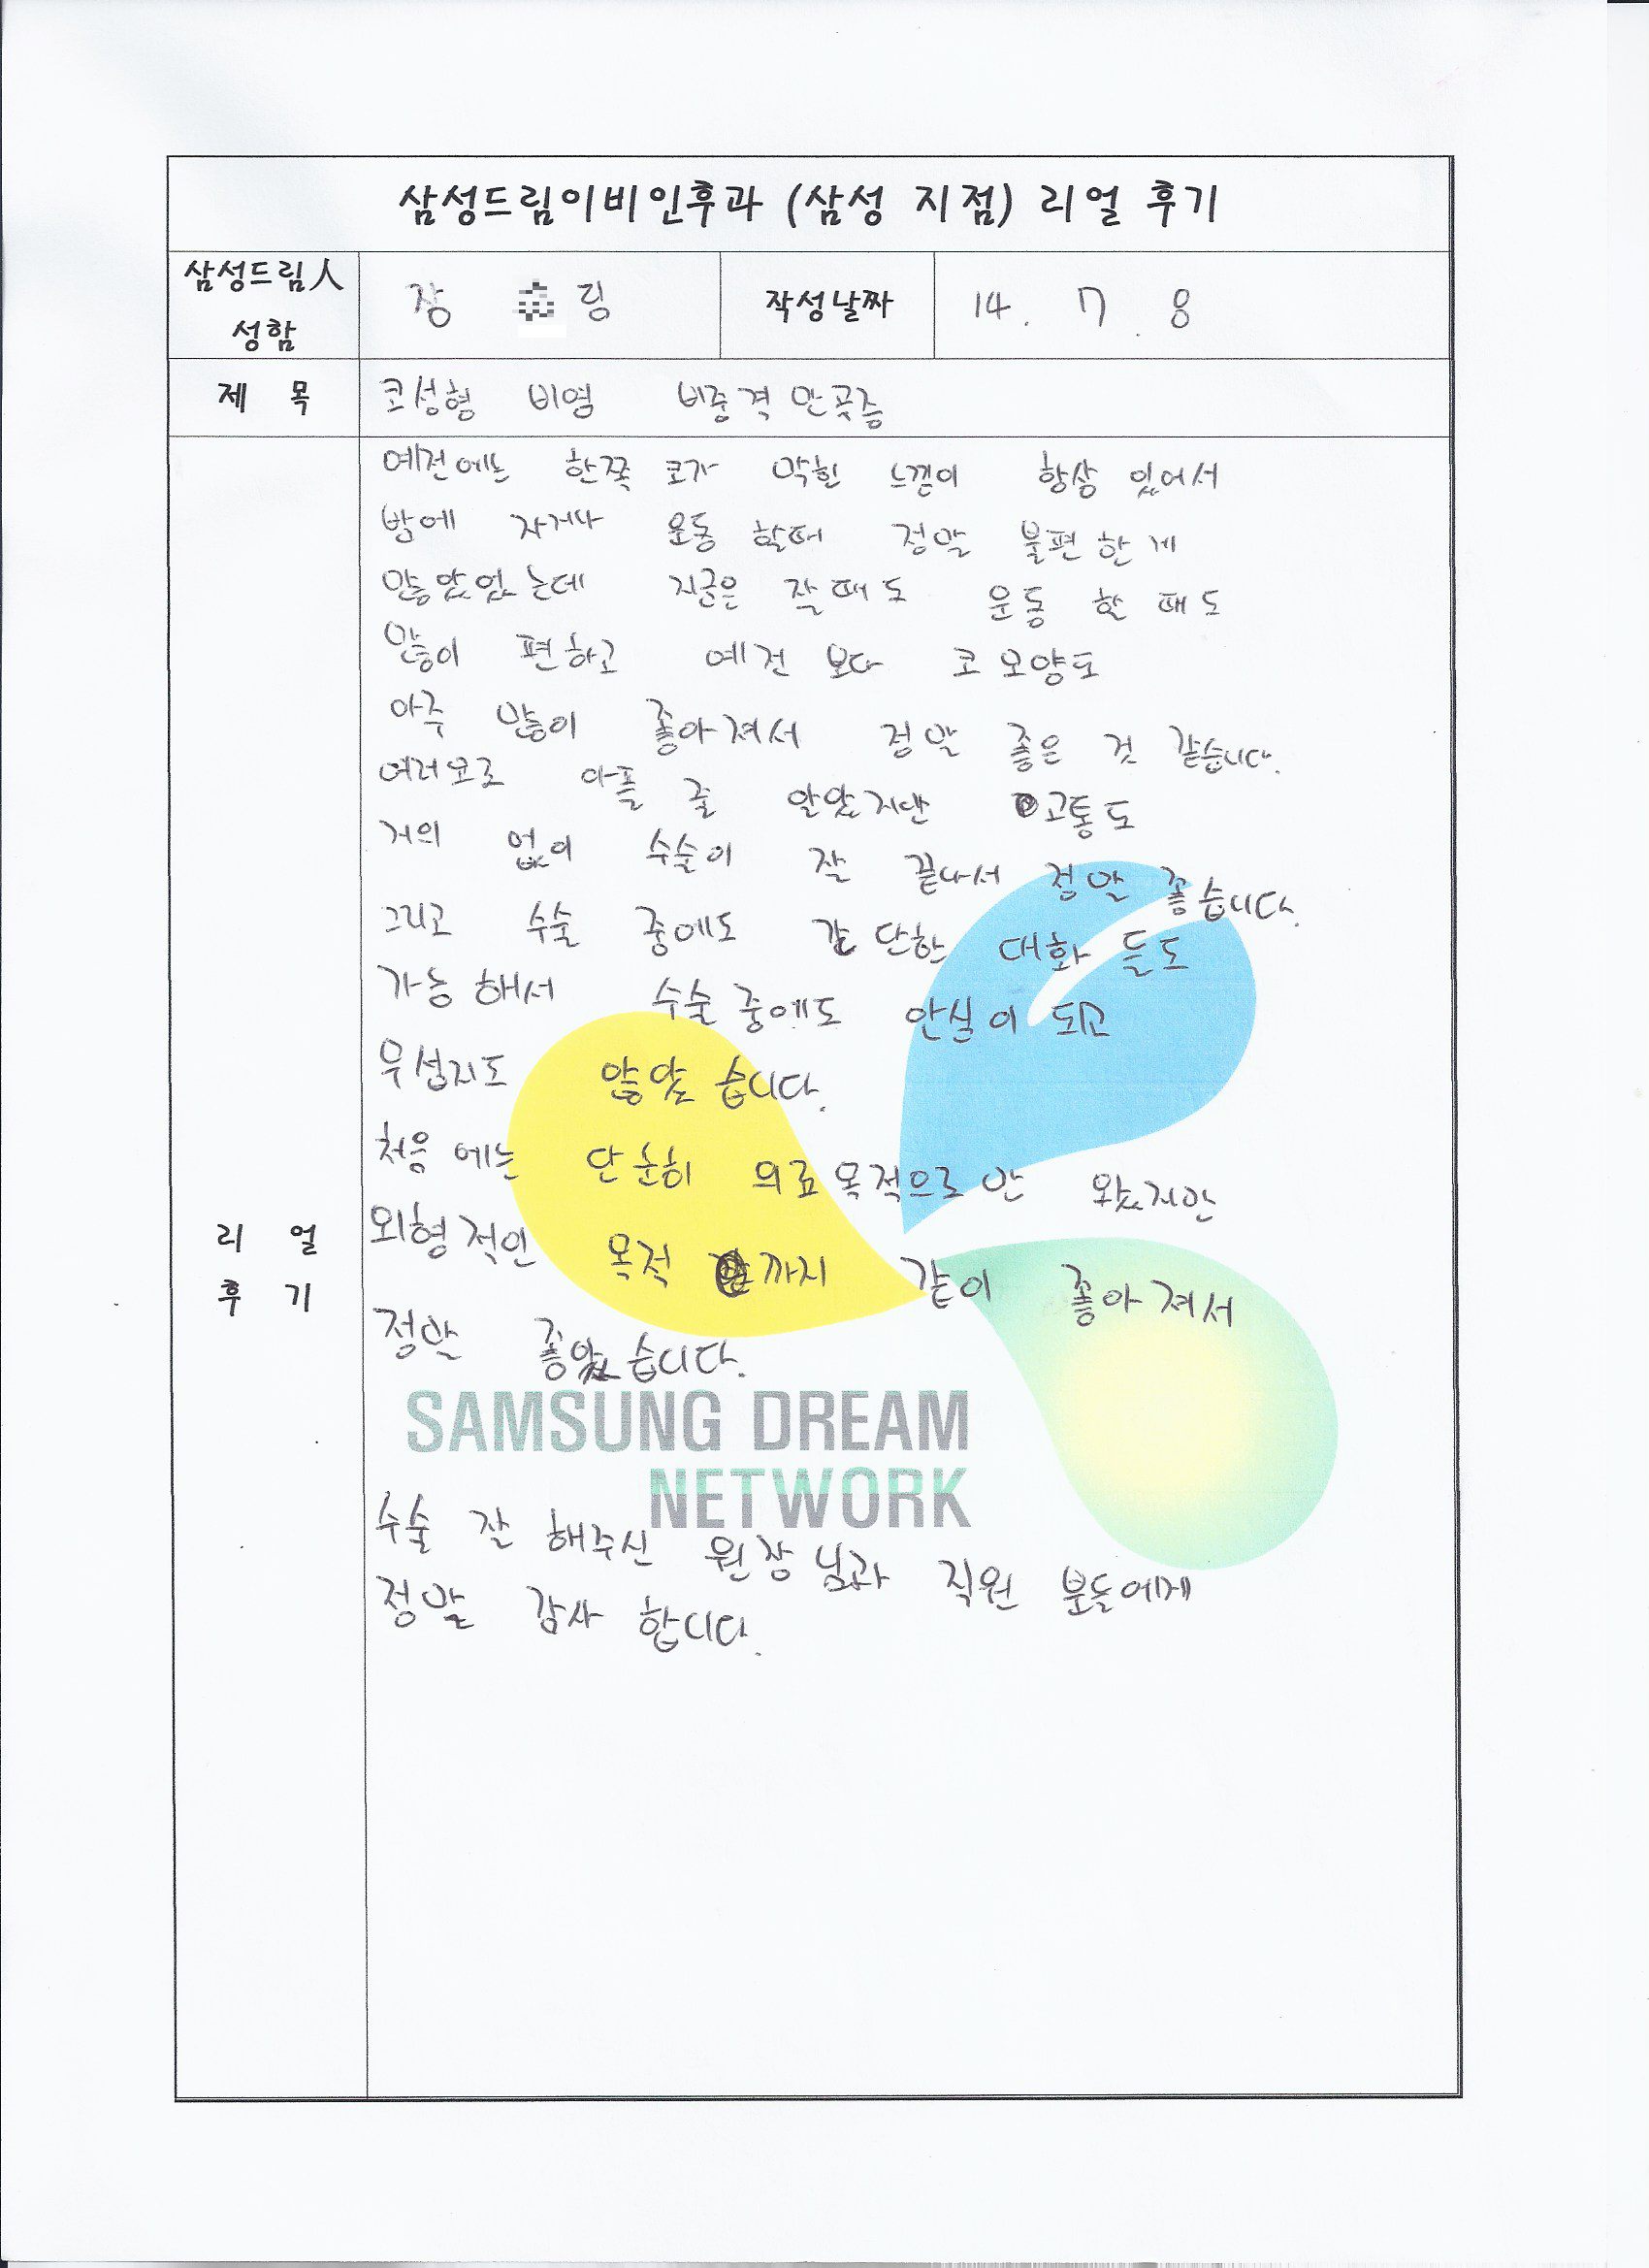 삼성드림이비인후과 (삼성 지점) 리얼 후기
삼성드림人 성함
장 림
작성날짜
14. 7. 8
제 목
코성형 비염 비중격 만곡증
리 얼 후 기
예전에는 한쪽 코가 막힌 느낌이 항상 있어서
밤에 자거나 운동 할때 정말 불편한게
많았었는데 지금은 잘때도 운동 할 때도
많이 편하고 예전 보다 코 모양도
아주 많이 좋아져서 정말 좋은 것 같습니다.
여러모로 아플 줄 알았지만 고통도
거의 없이 수술이 잘 끝나서 정말 좋습니다.
그리고 수술 중에도 간단한 대화 들도
가능 해서 수술 중에도 안심이 되고
무섭지도 않았습니다.
처음 에는 단순히 의료목적으로만 왔지만
외형적인 목적 까지 같이 좋아져서
정말 좋았습니다.
SAMSUNG DREAM
NETWORK
수술 잘 해주신 원장님과 직원 분들에게
정말 감사 합니다.